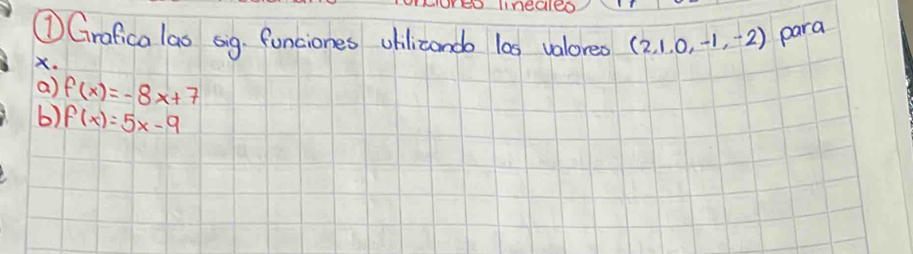 lineales
① Grafica las sig. funciones utilizando los valores (2,1,0,-1,-2) para
x.
a) f(x)=-8x+7
b) f(x)=5x-9